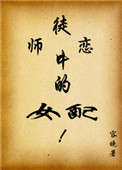 师徒恋
中的
女配！
容著